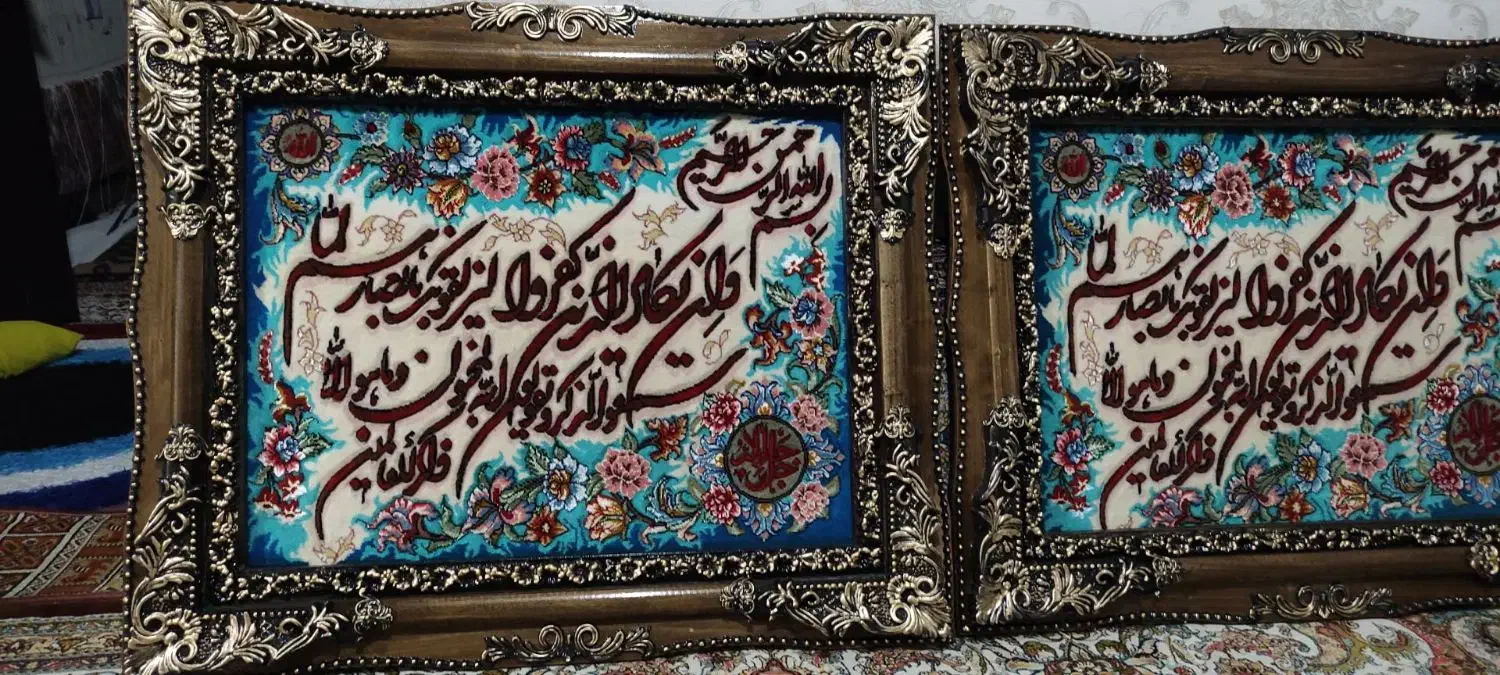 الله
بسم الله الرحمن الرحیم
وان یکاد الذین کفروا لیزلقونک بابصارهم لما
سمعوا الذکر و یقولون انه لمجنون وما هو الا
ذکر للعالمین
الله
بسم الله الرحمن الرحیم
وان یکاد الذین کفروا لیزلقونک بابصارهم لما
سمعوا الذکر و یقولون انه لمجنون وما هو الا
ذکر للعالمین